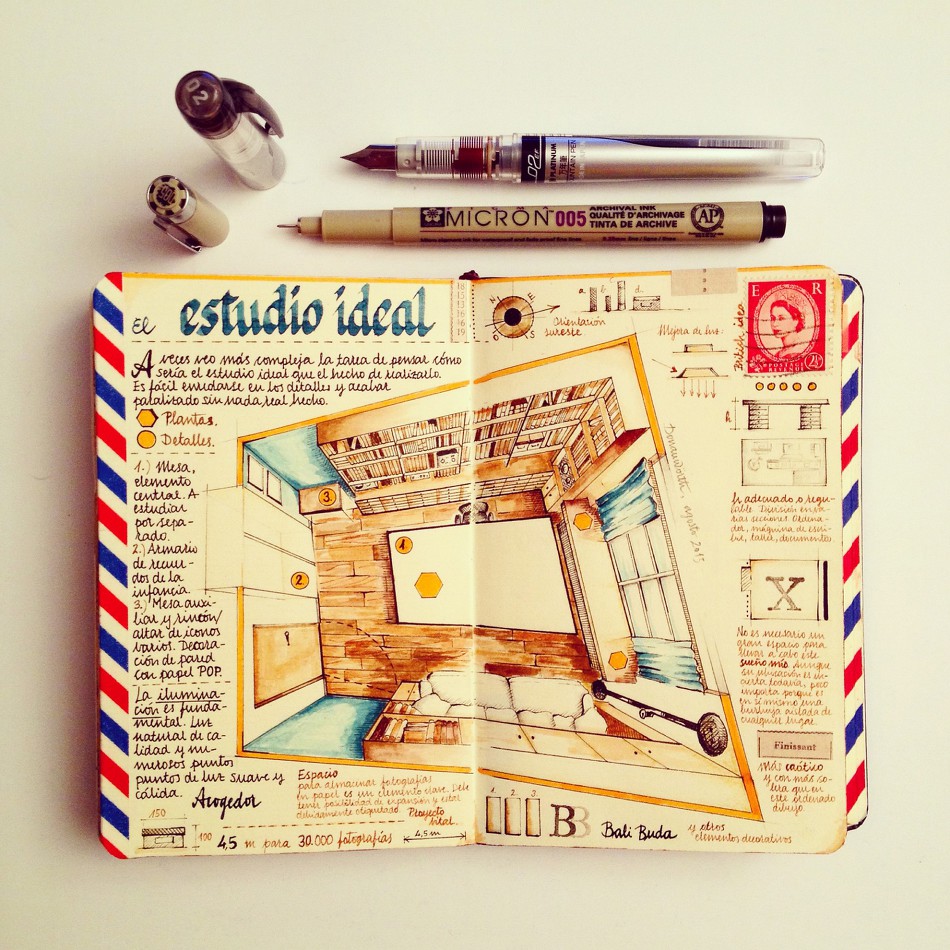 02
02
PLATINUM
MICRON 005
ARCHIVAL INK
QUALITÉ D'ARCHIVAGE
TINTA DE ARCHIVE
AP
El estudio ideal
A veces veo más compleja la tarea de pensar cómo
sería el estudio ideal que el hecho de realizarlo.
Es fácil enredarse en los detalles y acabar
paralizado sin nada real hecho.
Plantas.
Detalles.
1.) Mesa,
elemento
central. A
estudiar
por sepa-
rado.
2.) Armario
de recuer-
dos de la
infancia.
3.) Mesa auxi-
liar y rincón/
altar de iconos
varios. Decora-
ción de pared
con papel POP.
La ilumina-
ción es funda-
mental. Luz
natural de ca-
lidad y nu-
merosos puntos
puntos de luz suave y
cálida.
Acogedor
150
100
4,5 m para 30.000 fotografías
4,5 m
Espacio
para almacenar fotografías
en papel es un elemento clave. Debe
tener posibilidad de expansión y estar
debidamente etiquetado.
Proyecto
vital.
1
2
3
N
E
S
O
Orientación
sureste
a
b
d
Mejora de luz:
British, idea
E R
POSTAGE
REVENUE
2½
A
Donauwörth, agosto 2015
adecuado o regu-
lable. División en va-
rias secciones. Ordena-
dor, máquina de escri-
bir, taller, documentos
X
No es necesario un
gran espacio para
llevar a cabo este
sueño mío. Aunque
su ubicación es in-
cierta todavía, poco
importa porque es
en sí mismo una
burbuja aislada de
cualquier lugar.
Finissant
Más caótico
y con más so-
lera que en
este ordenado
dibujo.
1. 2. 3.
BB
Bali Buda
y otros
elementos decorativos